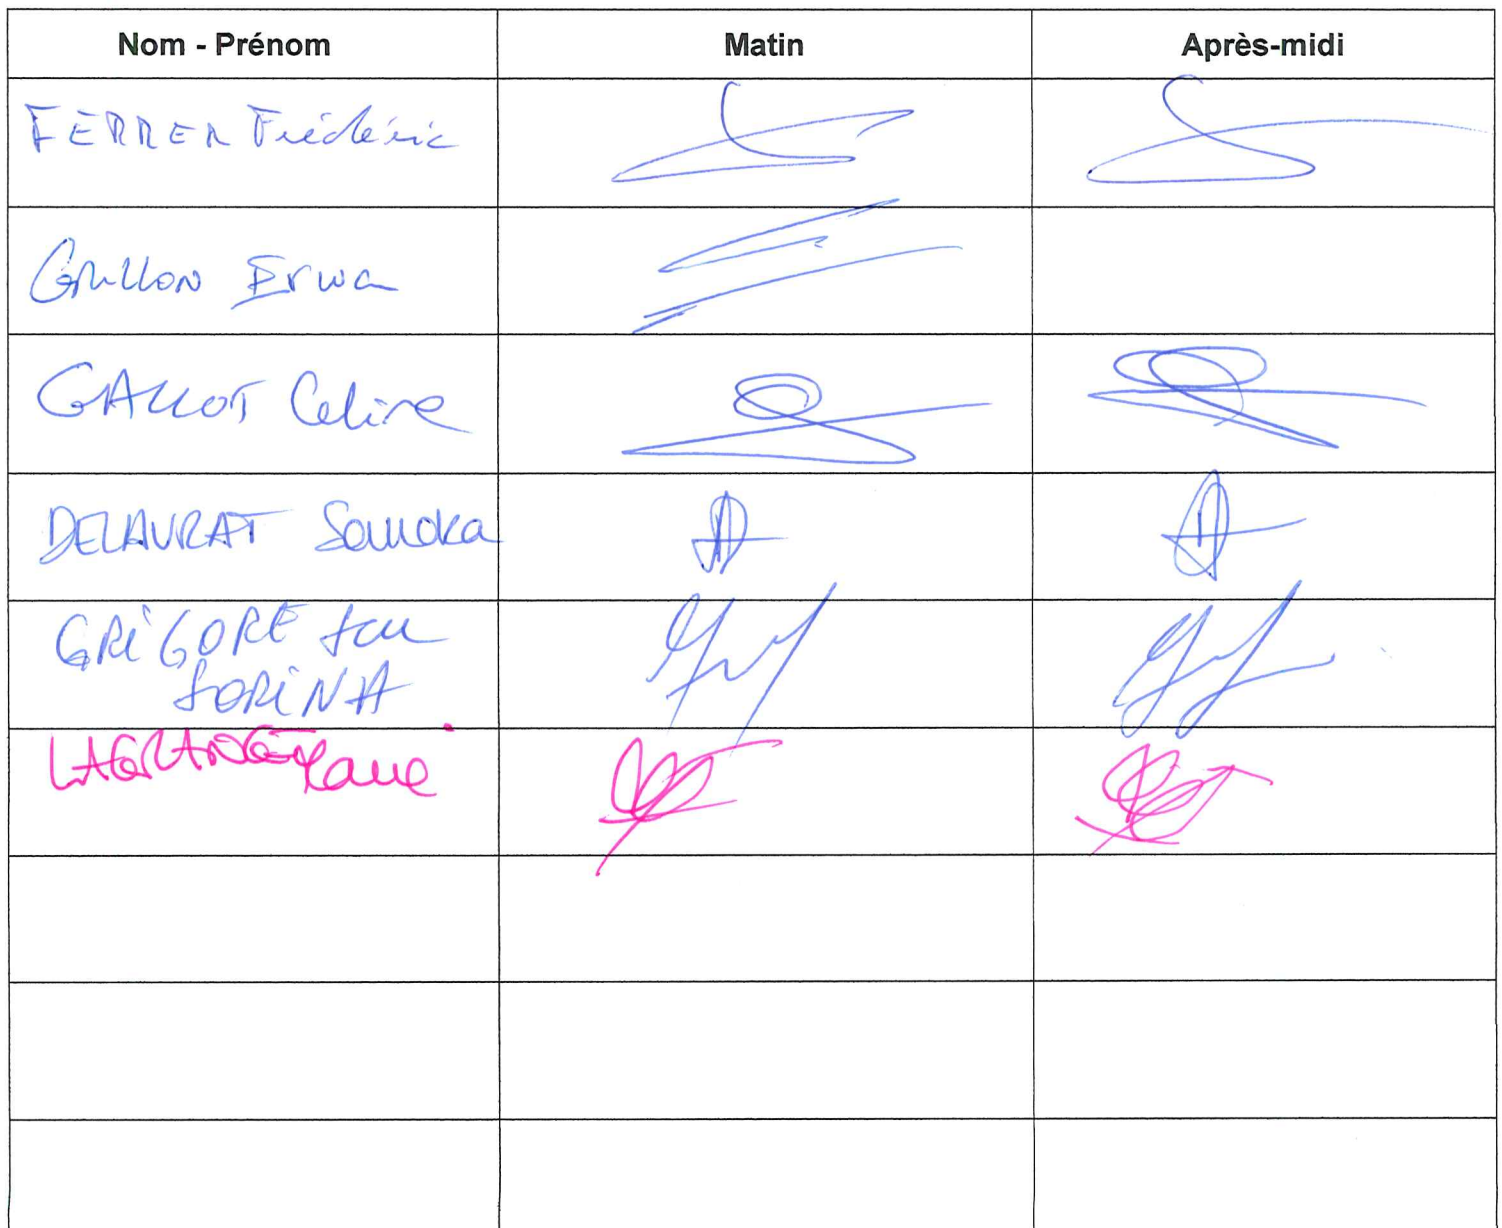 Nom - Prénom Matin Après-midi
FERRER Frédéric
Grillon Erwan
GALLOT Celine
DELAURAT
GRIGORE
SORINA
LAGRANGE